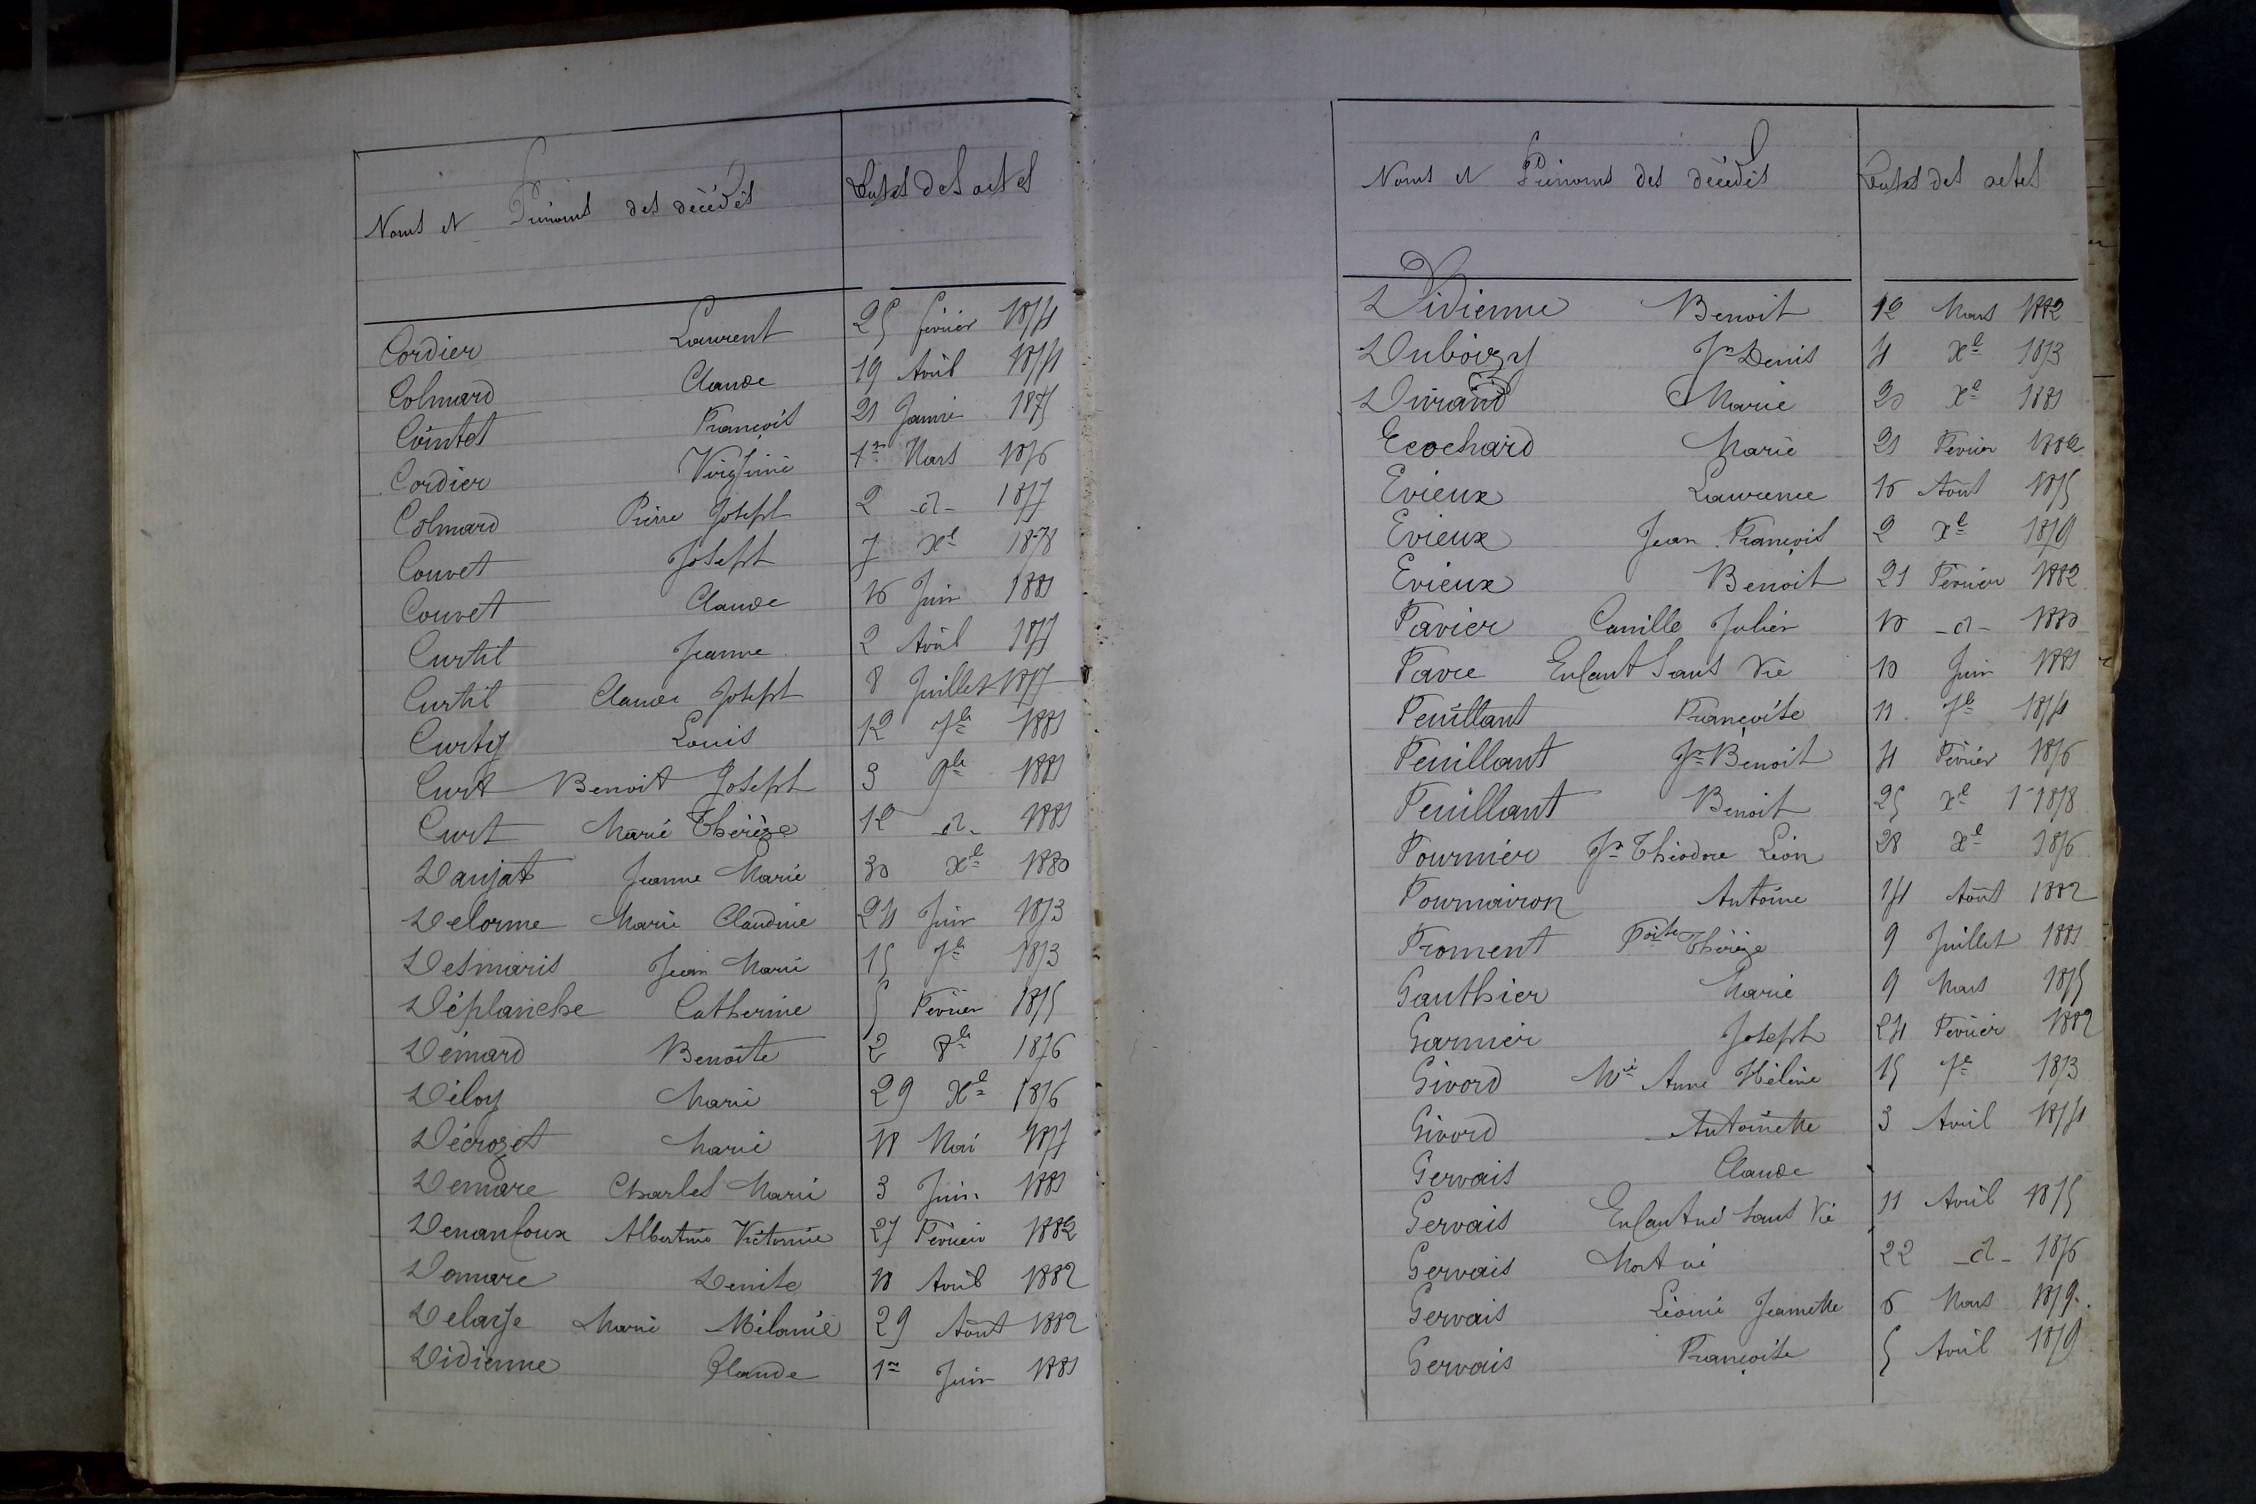 Noms et Prénoms des décédés Dates des actes
Cordier Laurent 25 février 1874
Colmard Claude 19 Avril 1874
Cointet François 21 Janvier 1875
Cordier Virginie 1er Mars 1876
Colmard Pierre Joseph 2 -d- 1877
Couvet Joseph 7 Xe 1878
Couvet Claude 16 Juin 1881
Curtil Jeanne 2 Avril 1877
Curtil Claude Joseph 8 Juillet 1877
Curty Louis 12 7bre 1881
Curt Benoit Joseph 3 9bre 1881
Curt Marie Thérèze 12 -d- 1881
Danjat Jeanne Marie 30 Xe 1880
Delorme Marie Claudine 24 Juin 1873
Desmaris Jean Marie 15 7bre 1873
Déplanche Catherine 5 Février 1875
Démard Benoite 2 8bre 1876
Déloy Marie 29 Xe 1876
Décrozet Marie 18 Mai 1877
Demare Charles Marie 3 Juin 1881
Denanfoux Albertine Victorine 27 Février 1882
Demare Denise 18 Avril 1882
Delaye Marie Mélanie 29 Août 1882
Didienne Claude 1er Juin 1881
Noms et Prénoms des décédés Dates des actes
Didienne Benoit 12 Mars 1882
Dubourgy Jn Denis 4 Xe 1873
Durand Marie 20 Xe 1881
Ecochard Marie 21 Fevrier 1882
Evieux Laurence 16 Août 1875
Evieux Jean François 2 Xe 1879
Evieux Benoit 21 Février 1882
Favier Camille Julien 10 -d- 1880
Favre Enfant Sans Vie 10 Juin 1881
Feuillant Françoise 11 7b 1874
Feuillant Jn Benoit 4 Février 1876
Feuillant Benoit 25 Xe 1878
Fournier Jn Théodore Léon 28 Xe 1876
Fournairon Antoine 14 Août 1882
Froment Foise Thérèze 9 Juillet 1881
Gauthier Marie 9 Mars 1875
Garnier Joseph 24 Fevrier 1882
Givord Mie Anne Hélène 15 7e 1873
Givord Antoinette 3 Avril 1874
Gervais Claude
Gervais Enfant né Sans Vie 11 Avril 1875
Gervais Mort né 22 -d- 1876
Gervais Léonie Jeannette 6 Mars 1879
Gervais Françoise 5 Avril 1879